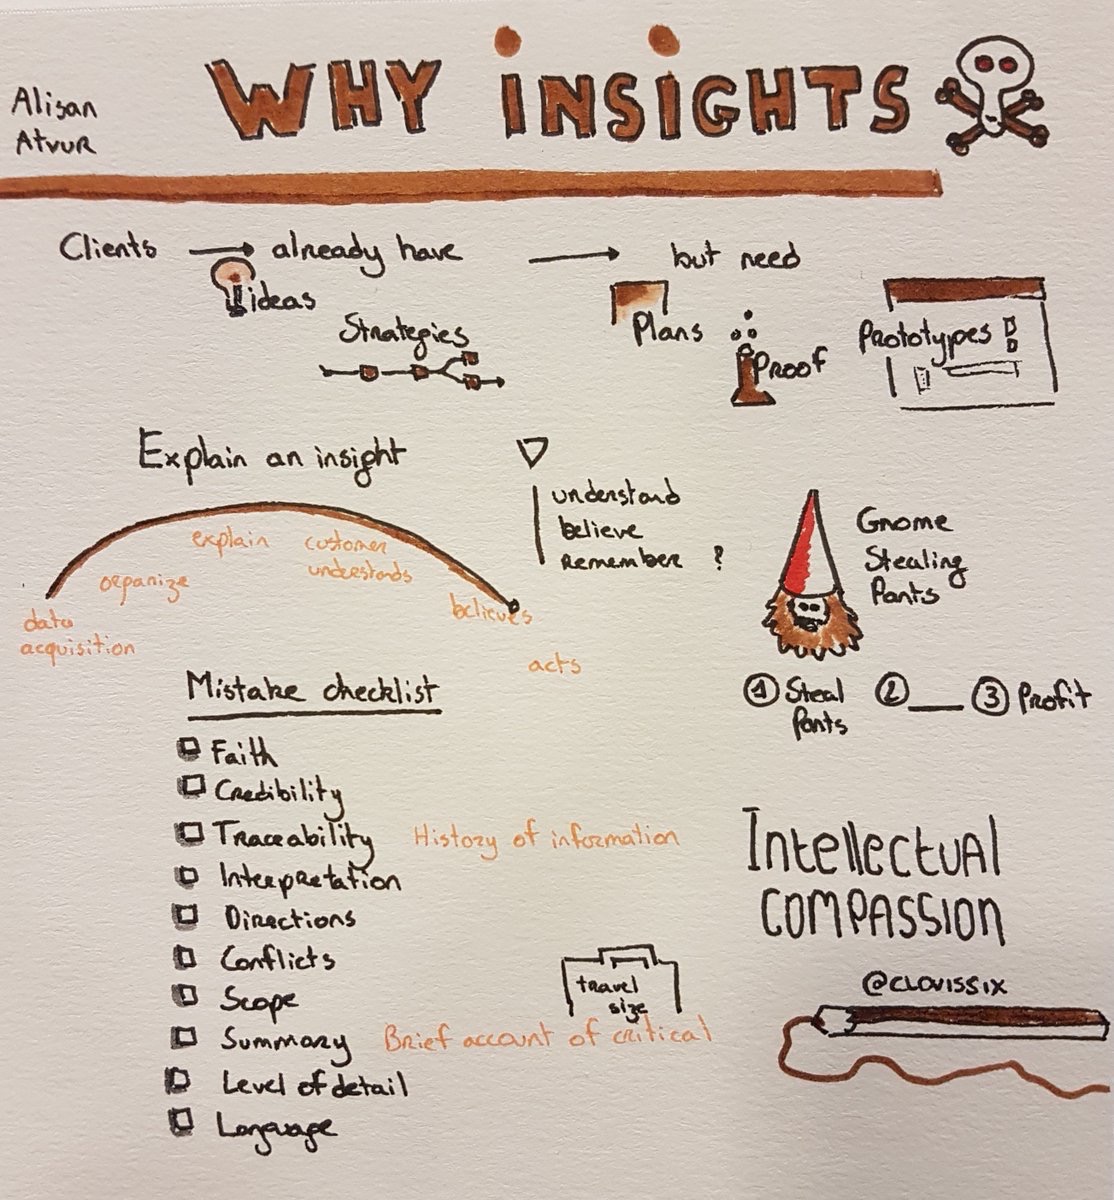 Alisan
Atvur
WHY iNSiGHTS
Clients → already have → but need
ideas
Strategies
Plans
Proof
Prototypes
Explain an insight
data
acquisition
organize
explain
customer
understands
believes
acts
understand
believe
remember ?
Gnome
Stealing
Pants
① Steal
Pants
② ___ ③ Profit
Mistake checklist
Faith
Credibility
Traceability History of information
Interpretation
Directions
Conflicts
Scope
Summary Brief account of critical
Level of detail
Language
travel
size
Intellectual
COMPASSION
@CLOVISSIX